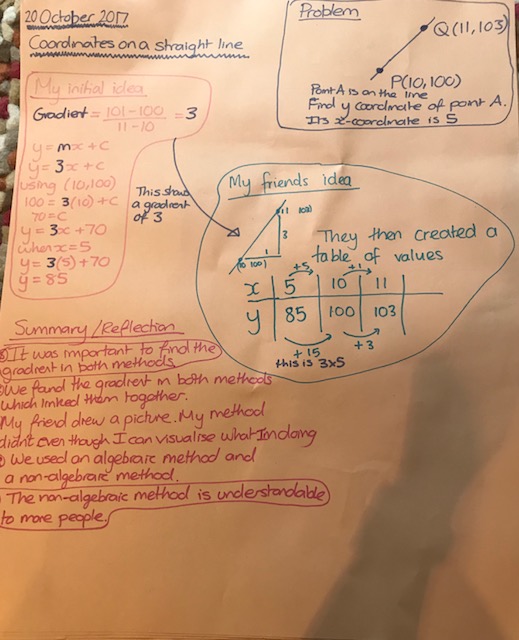 20 October 2017
Coordinates on a straight line
Problem
Q(11,103)
P(10,100)
Point A is on the line
Find y coordinate of point A.
Its x-coordinate is 5
My initial idea
Gradient = 101-100 / 11-10 = 3
y = mx + c
y = 3x + c
using (10,100)
100 = 3(10) + C
70 = C
y = 3x + 70
when x = 5
y = 3(5) + 70
y = 85
This shows
a gradient
of 3
My friends idea
11 103)
3
1
(10 100)
They then created a
table of values
+5 +1
x 5 10 11
y 85 100 103
+15 +3
this is 3x5
Summary/Reflection
It was important to find the
gradient in both methods
We found the gradient in both methods
which linked them together.
My friend drew a picture. My method
didn't even though I can visualise what I'm doing
We used an algebraic method and
a non-algebraic method.
The non-algebraic method is understandable
to more people.